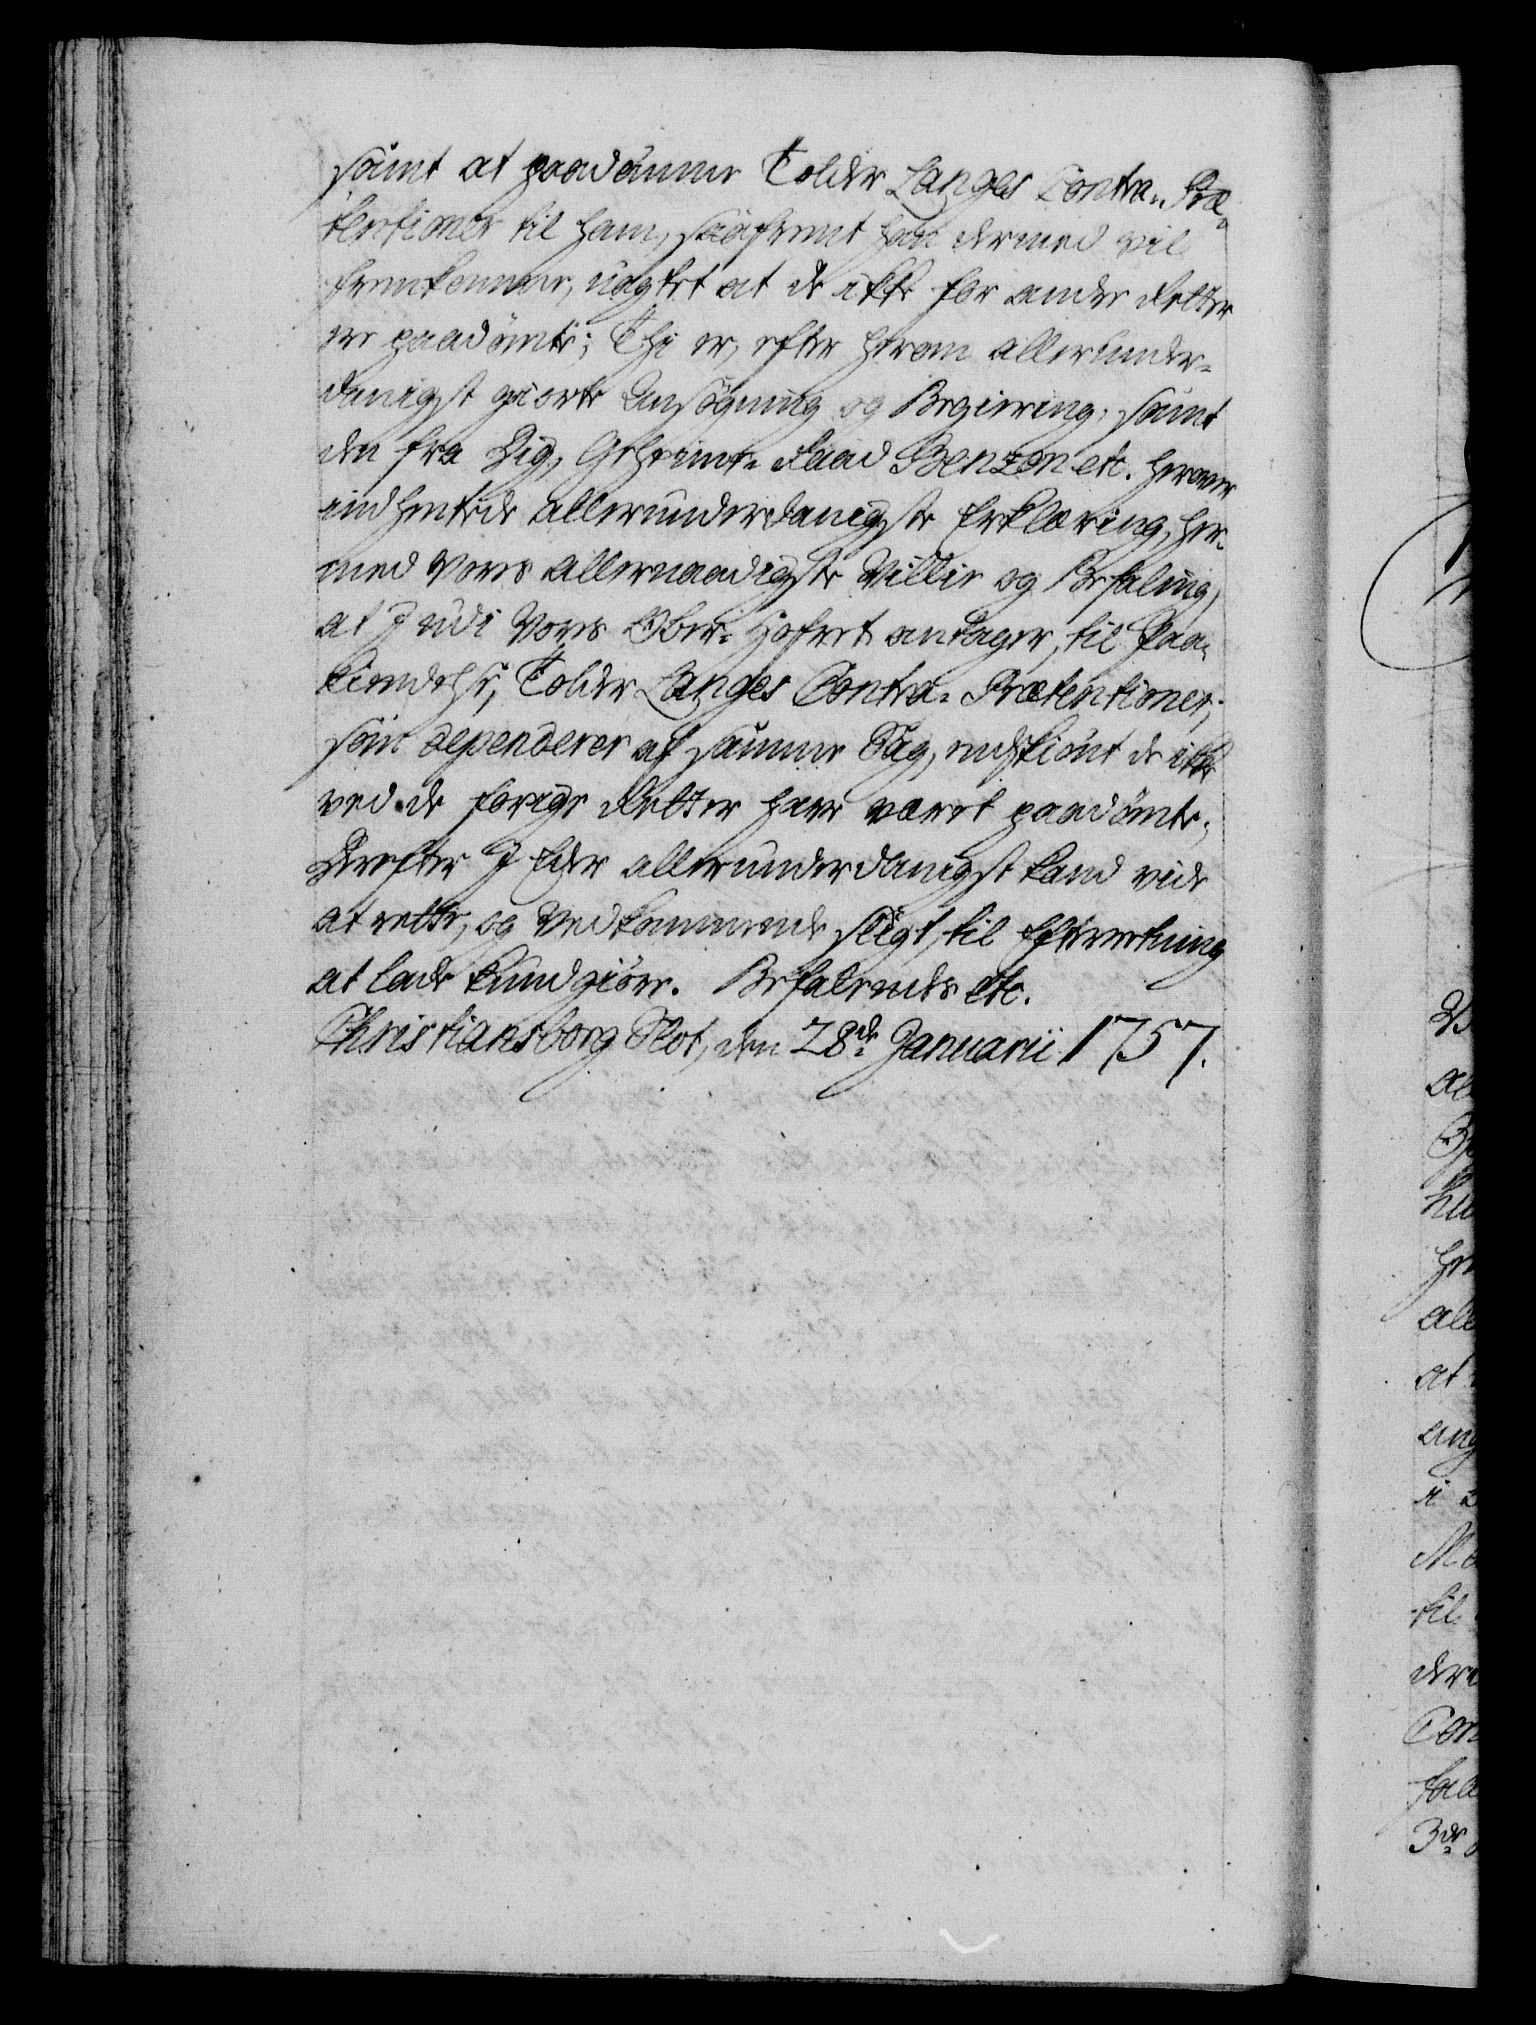 samt at paadømme Tolder Langes Contra-Præ-
tentioner til ham, saafremt han dermed vil
fremkomme, uagtet at de ikke for andre Retter
ere paadømte; Thi er, efter herom allerunder-
danigst giorte Ansøgning og Begiering, samt
den fra Dig, Geheime-Raad Benzon etc. herover
indhentede allerunderdanigste Erklæring, her-
med Vores allernaadigste Villie og Befaling,
at I udi Vores Ober-Hofret antager, til Paa-
kiendelse, Tolder Langes Contra-Prætentioner,
som dependerer af samme Sag, endskiønt de ikke
ved de forige Retter have været paadømte;
Derefter I Eder allerunderdanigst kand vide
at rette, og Vedkommende sligt, til Efterretning
at lade kundgiøre. Befalendes etc.
Christiansborg Slot, den 28de Januarii 1757.